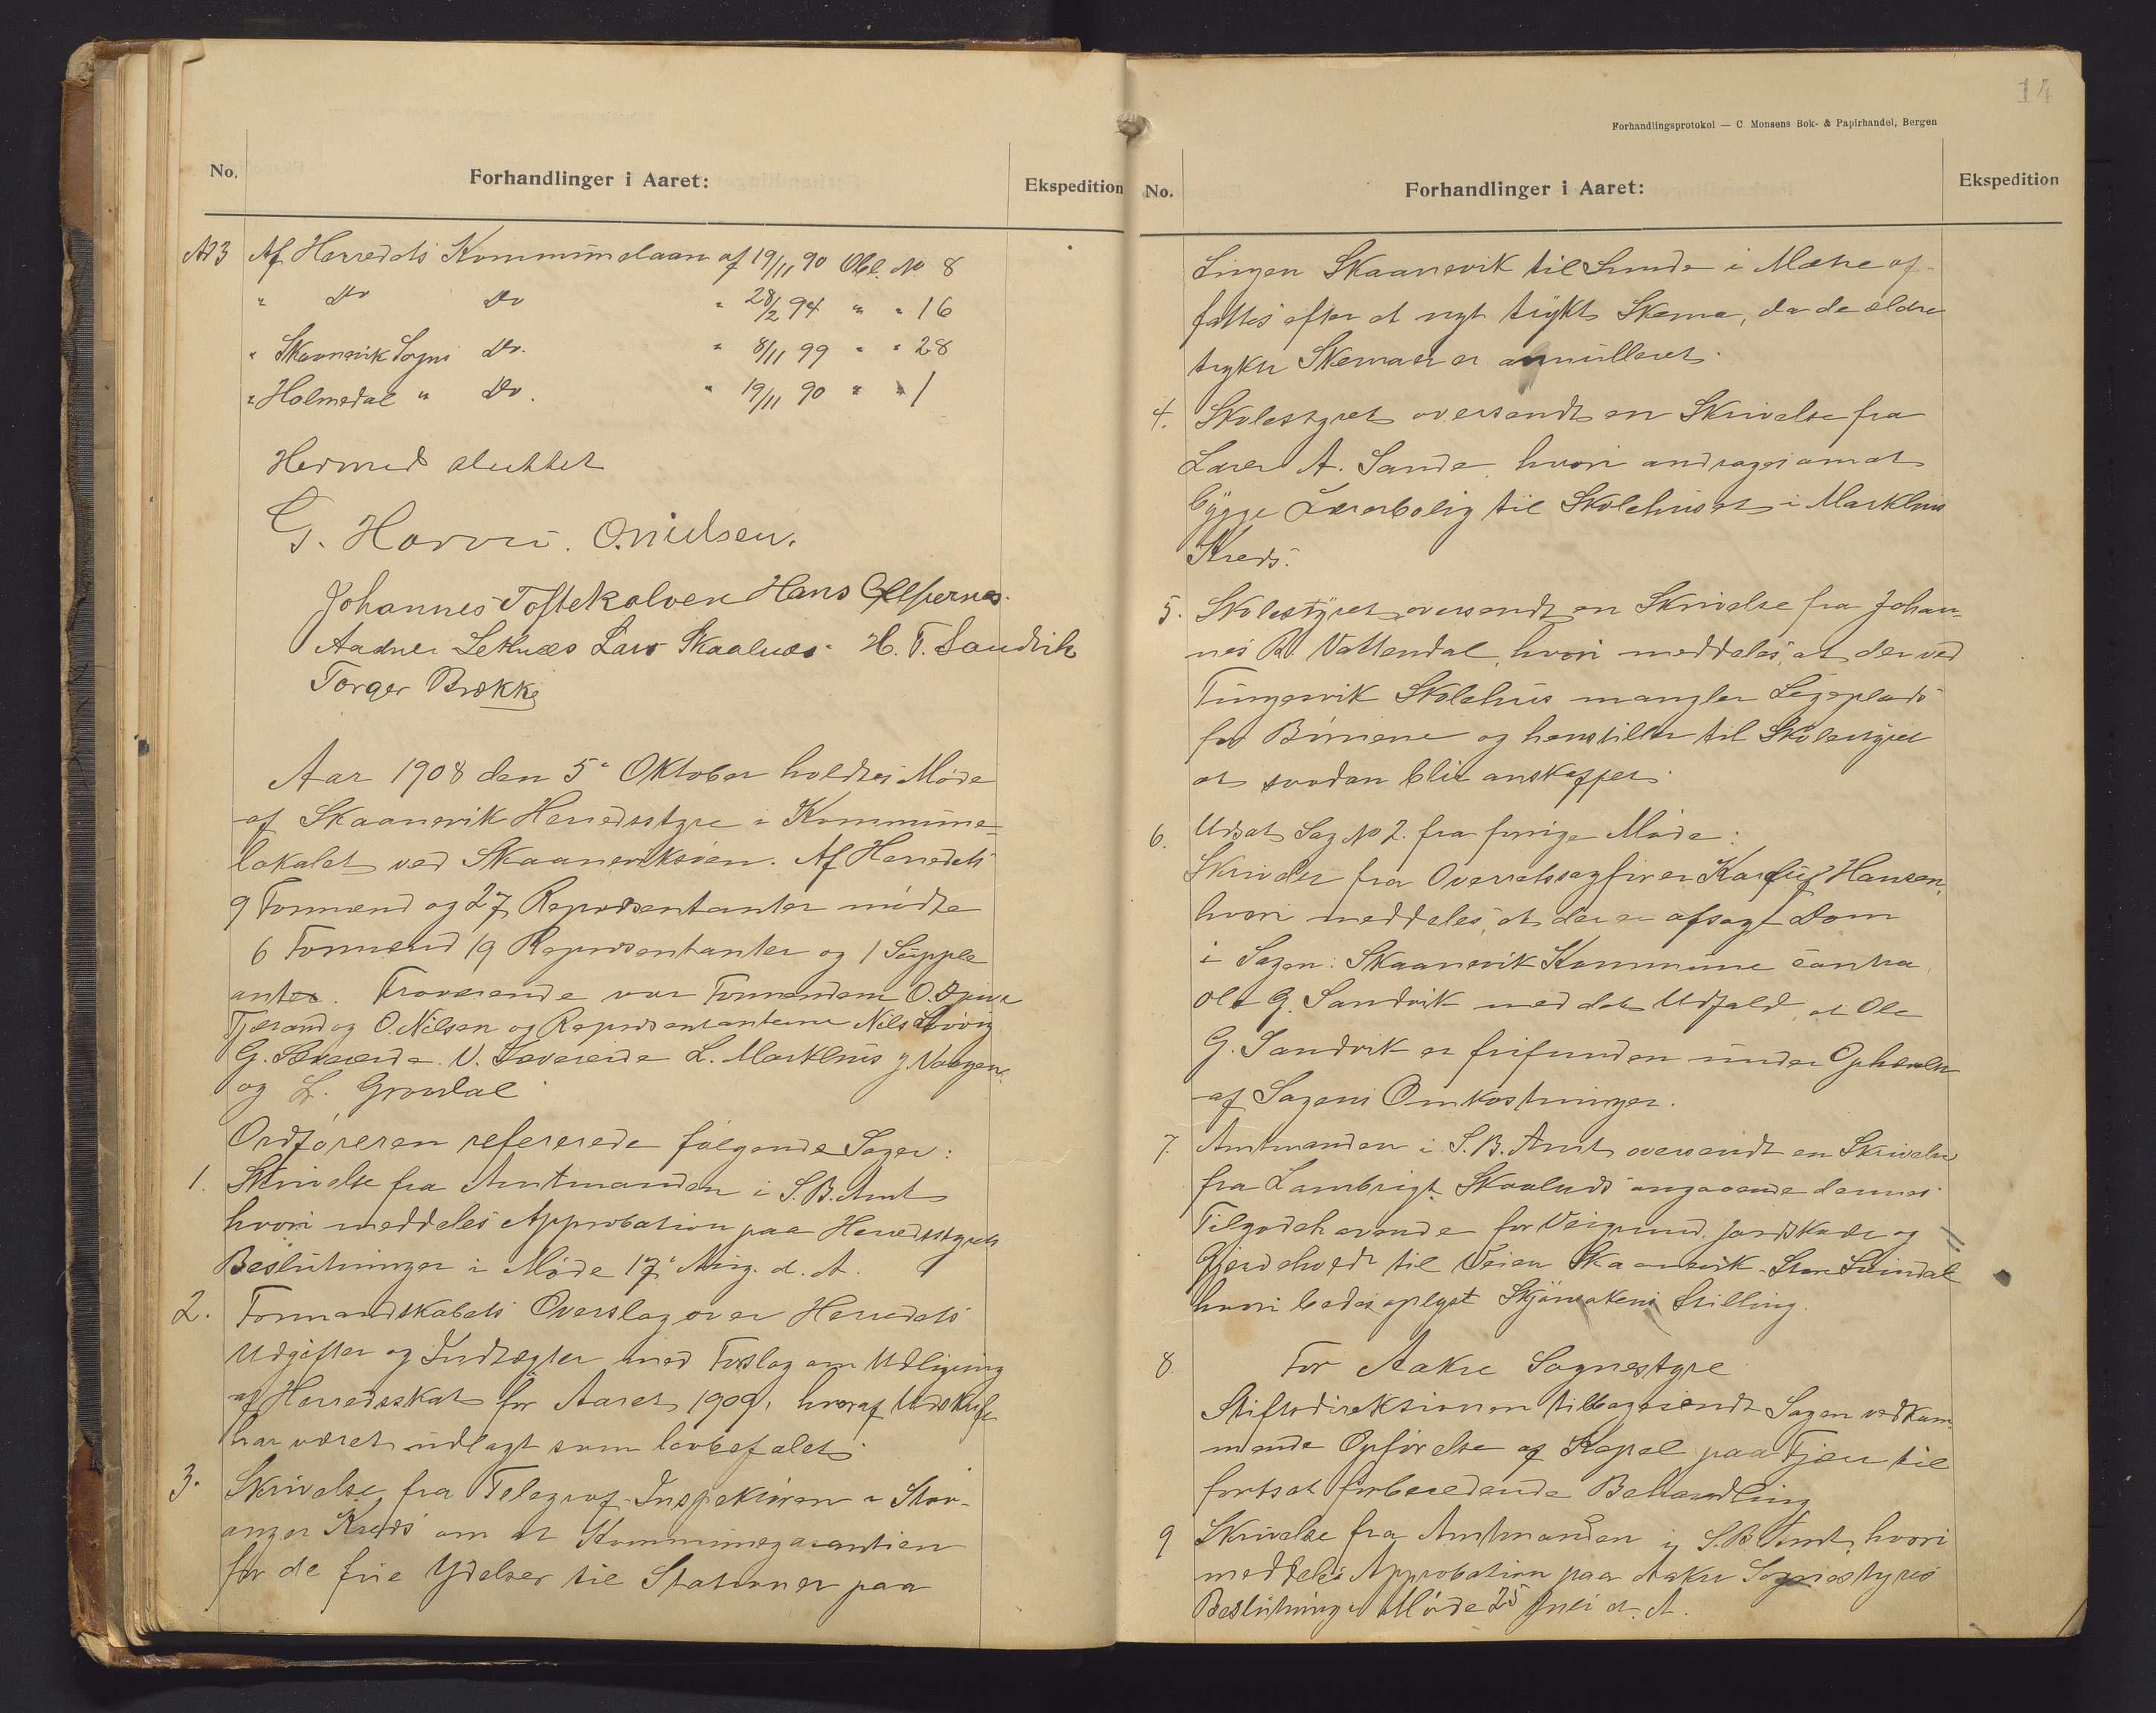 No. Forhandlinger i Aaret: Ekspedition
No 3 Af Herredets Kommunelaan af 19/11 90 Obl. No 8
" Do Do " 28/2 94 " " 16
" Skaanevik Sogns Do. " 8/11 99 " " 28
" Holmedal " Do. " 19/11 90 " " 1
Hermed sluttet
G. Horvei. O. Nielsen.
Johannes Toftekalven Hans
Aadne Leknæs Lars Skaalnæs. H. T. Sandvik
Torger Brekke
Aar 1908 den 5' Oktober holdtes Møde
af Skaanevik Herredsstyre i Kommune-
lokalet ved Skaaneviksøen. Af Herredets
9 Formænd og 27 Repræsentanter mødte
6 Formænd 19 Repræsentanter og 1 Supple
ant. Fraværende var Formændene O.
Fjæraog O. Nilsen og Repræsentanterne Nils
G. V. Sævereide L. Marklhus J. Vaagen
og L. Grovdal
Ordføreren refererede følgende Sager:
1. Skrivelse fra Amtmanden i S. B. Amt
hvori meddeles Approbation paa Herredsstyrets
Beslutninger i Møde 17' Aug. d. A.
2. Formandskabets Overslag over Herredets
Udgifter og Indtægter med Forslag om Udligning
af Herredsskat for Aaret 1909, hvoraf Udskrift
har været udlagt som lovbefalet.
3. Skrivelse fra Telegraf-Inspektøren i Stav-
anger Kreds om at Kommunegarantien
for de frie Ydelser til Stationer paa
14
Forhandlingsprotokol — C. Monsens Bok- & Papirhandel, Bergen
No. Forhandlinger i Aaret: Ekspedition
Linjen Skaanevik til Lunde i Matre af-
fattes efter et nyt trykt Skema, da de ældre
trykte Skemaer er annulleret.
4. Skolestyret oversendt en Skrivelse fra
Lærer A. Sande, hvori andrages om at
bygge Lærerbolig til Skolehuset i Marklhus
Kreds.
5. Skolestyret oversendt en Skrivelse fra Johan-
nes R. Vattendal, hvori meddeles, at der ved
Tungesvik Skolehus mangler Legeplads
for Børnene og henstiller til Skolestyret
at saadan blir anskaffet.
6. Udsat Sag No 2. fra forrige Møde:
Skrivelse fra Overretssagfører Karluf Hansen,
hvori meddeles, at der er afsagt Dom
i Sagen: Skaanevik Kommune contra
Ole G. Sandvik med det Udfald, at Ole
G. Sandvik er frifunden under Ophævelse
af Sagens Omkostninger.
7. Amtmanden i S. B. Amt oversendt en Skrivelse
fra Lambrigt Skaaluds angaaende dennes
Tilgodehavende for Veigrund, Jordskade og
Gjerdehold til Veien Skaanevik-Store Sundal
hvori bedes oplyst Skjønsakens Stilling.
8. For Aakre Sognestyre
Stiftsdirektionen tilbagesendt Sagen vedkom-
mende Opførelse af Kapel paa Fjære til
fortsat forberedende Behandling
9 Skrivelse fra Amtmanden i S. B Amt, hvori
meddeles Approbation paa Aakre Sognestyres
Beslutning i Møde 25 Juli d. A.